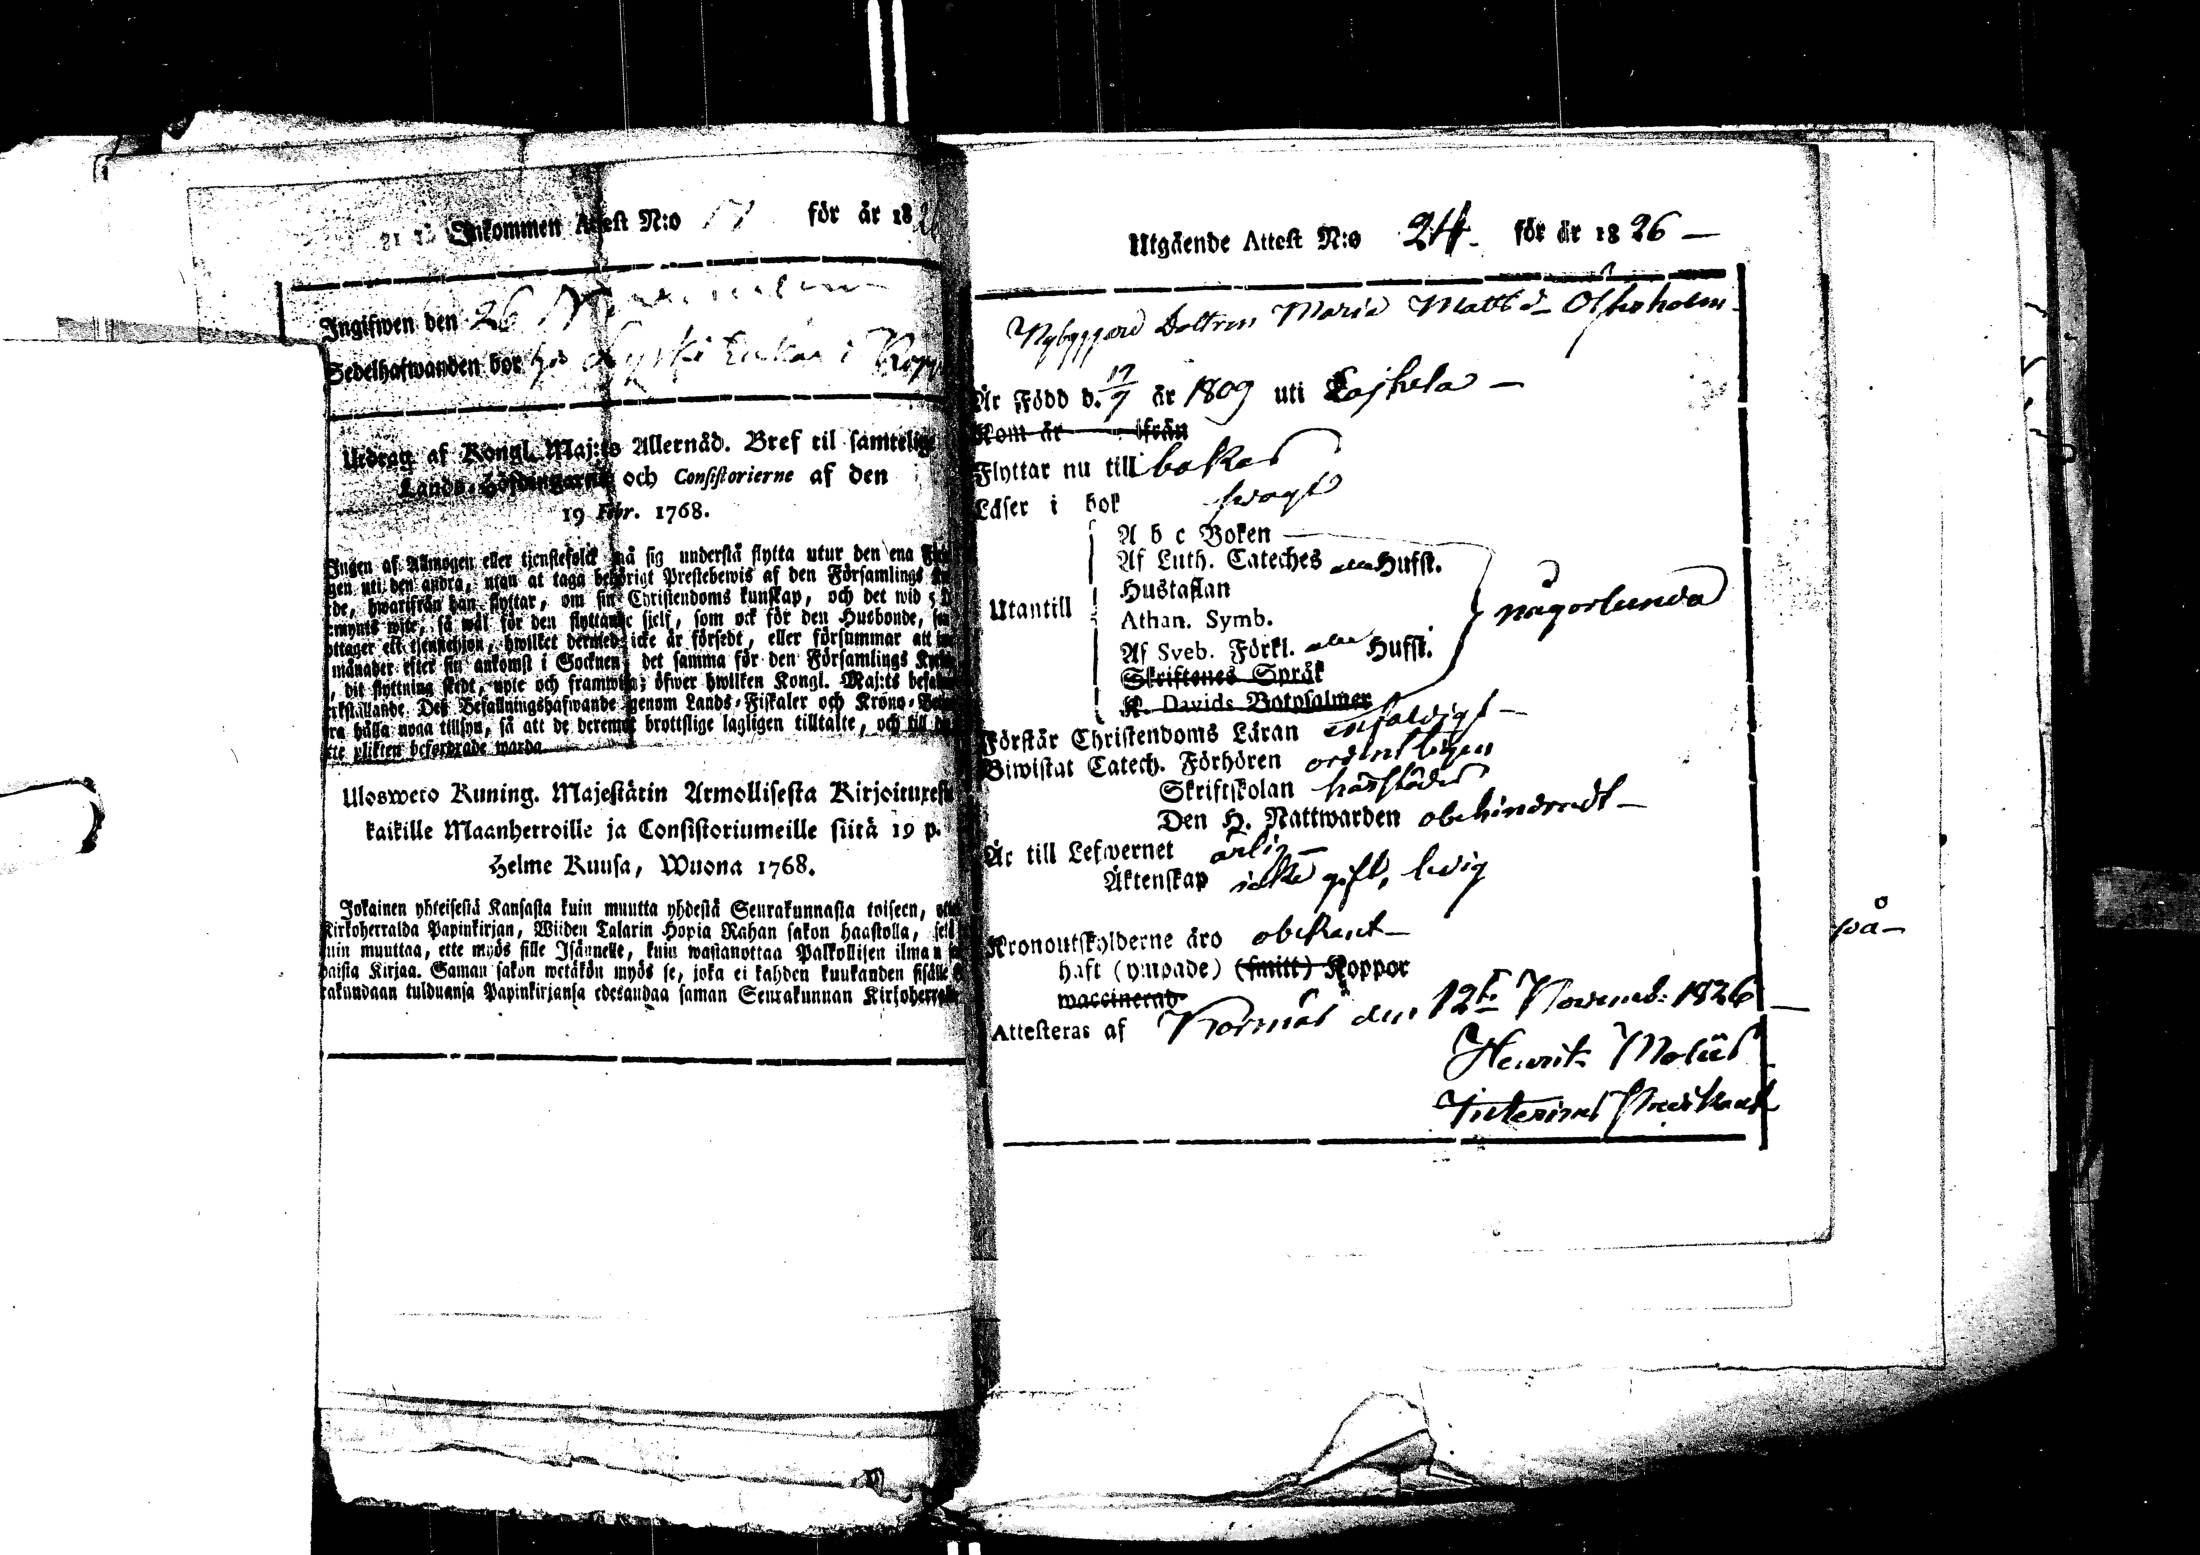 Inkommen Attest N:o 17 för år 18
Ingifwen den 26
Sedelhafwanden bor hos
Utdrag af Kongl. Maj:ts Allernåd. Bref til samtelige
Lands-Höfdingarne och Consistorierne af den
19 Febr. 1768.
Ingen af Allmogen eller tjenstefolck må sig understå flytta utur den ena
gen uti den andra, utan at taga behörigt Prestebewis af den Församlings
de, hwarifrån han flyttar, om sin Christendoms kunskap, och det wid 5 D
mynts wite, så wäl för den flyttande sjelf, som ock för den Husbonde,
ottager ett tjenstehjon, hwilket dermed icke är försedt, eller försummar att
månader efter sin ankomst i Socknen, det samma för den Församlings
, dit flyttning skedt, upte och framwisa; öfwer hwilken Kongl. Maj:ts
rkställande. Des Befallningshafwande genom Lands-Fiskaler och Krono-
ra hålla noga tillsyn, så att de deremot brottslige lagligen tilltalte, och till
te plikten befordrade warda
Ulosweto Kuning. Majestätin Armollisesta Kirjoituxesta
kaikille Maanherroille ja Consistoriumeille siitä 19 p.
Helme Kuusa, Wuona 1768.
Jokainen yhteisestä Kansasta kuin muutta yhdestä Seurakunnasta toiseen,
Kirkoherralda Papinkirjan, Wiiden Talarin Hopia Rahan sakon haastolla,
kuin muuttaa, ette myös sille Isännelle, kuin wastanottaa Palkollisen ilman
paista Kirjaa. Saman sakon wetäkön myös se, joka ei kahden kuukanden sisälle
rakundaan tulduansa Papinkirjansa edesandaa saman Seurakunnan Kirkoherralle
Utgående Attest N:o 24. för år 1826 —
Nybyggare Dottren Maria Matts dr
Är Född d. 17/9 år 1809 uti Lajhela —
Kom år ifrån
Flyttar nu till
Läser i bok swagt
A b c Boken
Af Luth. Cateches utan Husst.
Hustaflan
Utantill
Athan. Symb.
någorlunda
Af Sveb. Förkl. utan Husst.
Skriftenes Språk
K. Davids Botpsalmer
Förstår Christendoms Läran enfaldigt —
Biwistat Catech. Förhören ordentligen
Skriftskolan härstädes
Den H. Nattwarden obehindradt —
Är till Lefwernet ärlig —
Äktenskap icke gift, ledig
Kronoutskylderne äro obekant —
haft (ympade) (smitt) Koppor
waccinerad
Attesteras af Korsnäs den 12te Novemb: 1826 —
Henrik
Interims Predikant
två —